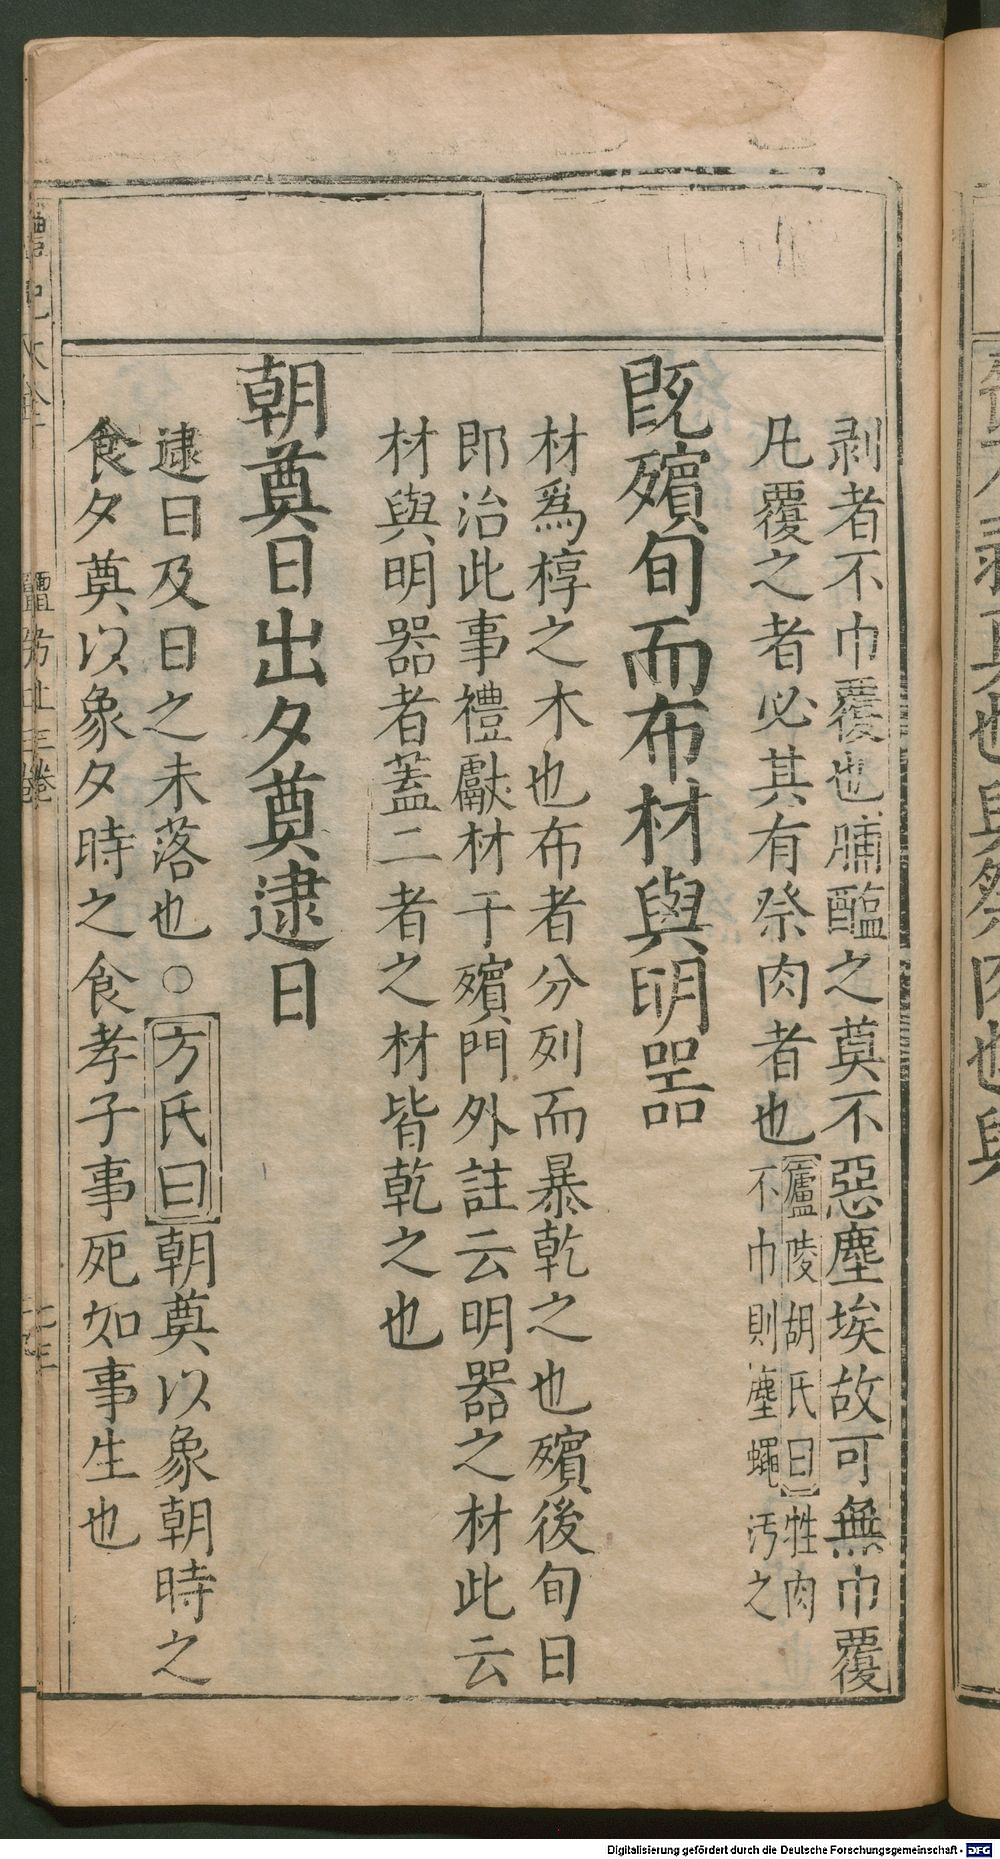 剥者不巾覆也脯醢之奠不惡塵埃故可無巾覆
凡覆之者必其有祭肉者也廬陵胡氏曰牲肉
不巾則塵蠅汚之
既殯旬而布材與明器
材爲椁之木也布者分列而暴乾之也殯後旬日
即治此事禮獻材于殯門外註云明器之材此云
材與明器者蓋二者之材皆乾之也
朝奠日出夕奠逮日
逮日及日之未落也○方氏曰朝奠以象朝時之
食夕奠以象夕時之食孝子事死如事生也
Digitalisierung gefördert durch die Deutsche Forschungsgemeinschaft - DFG